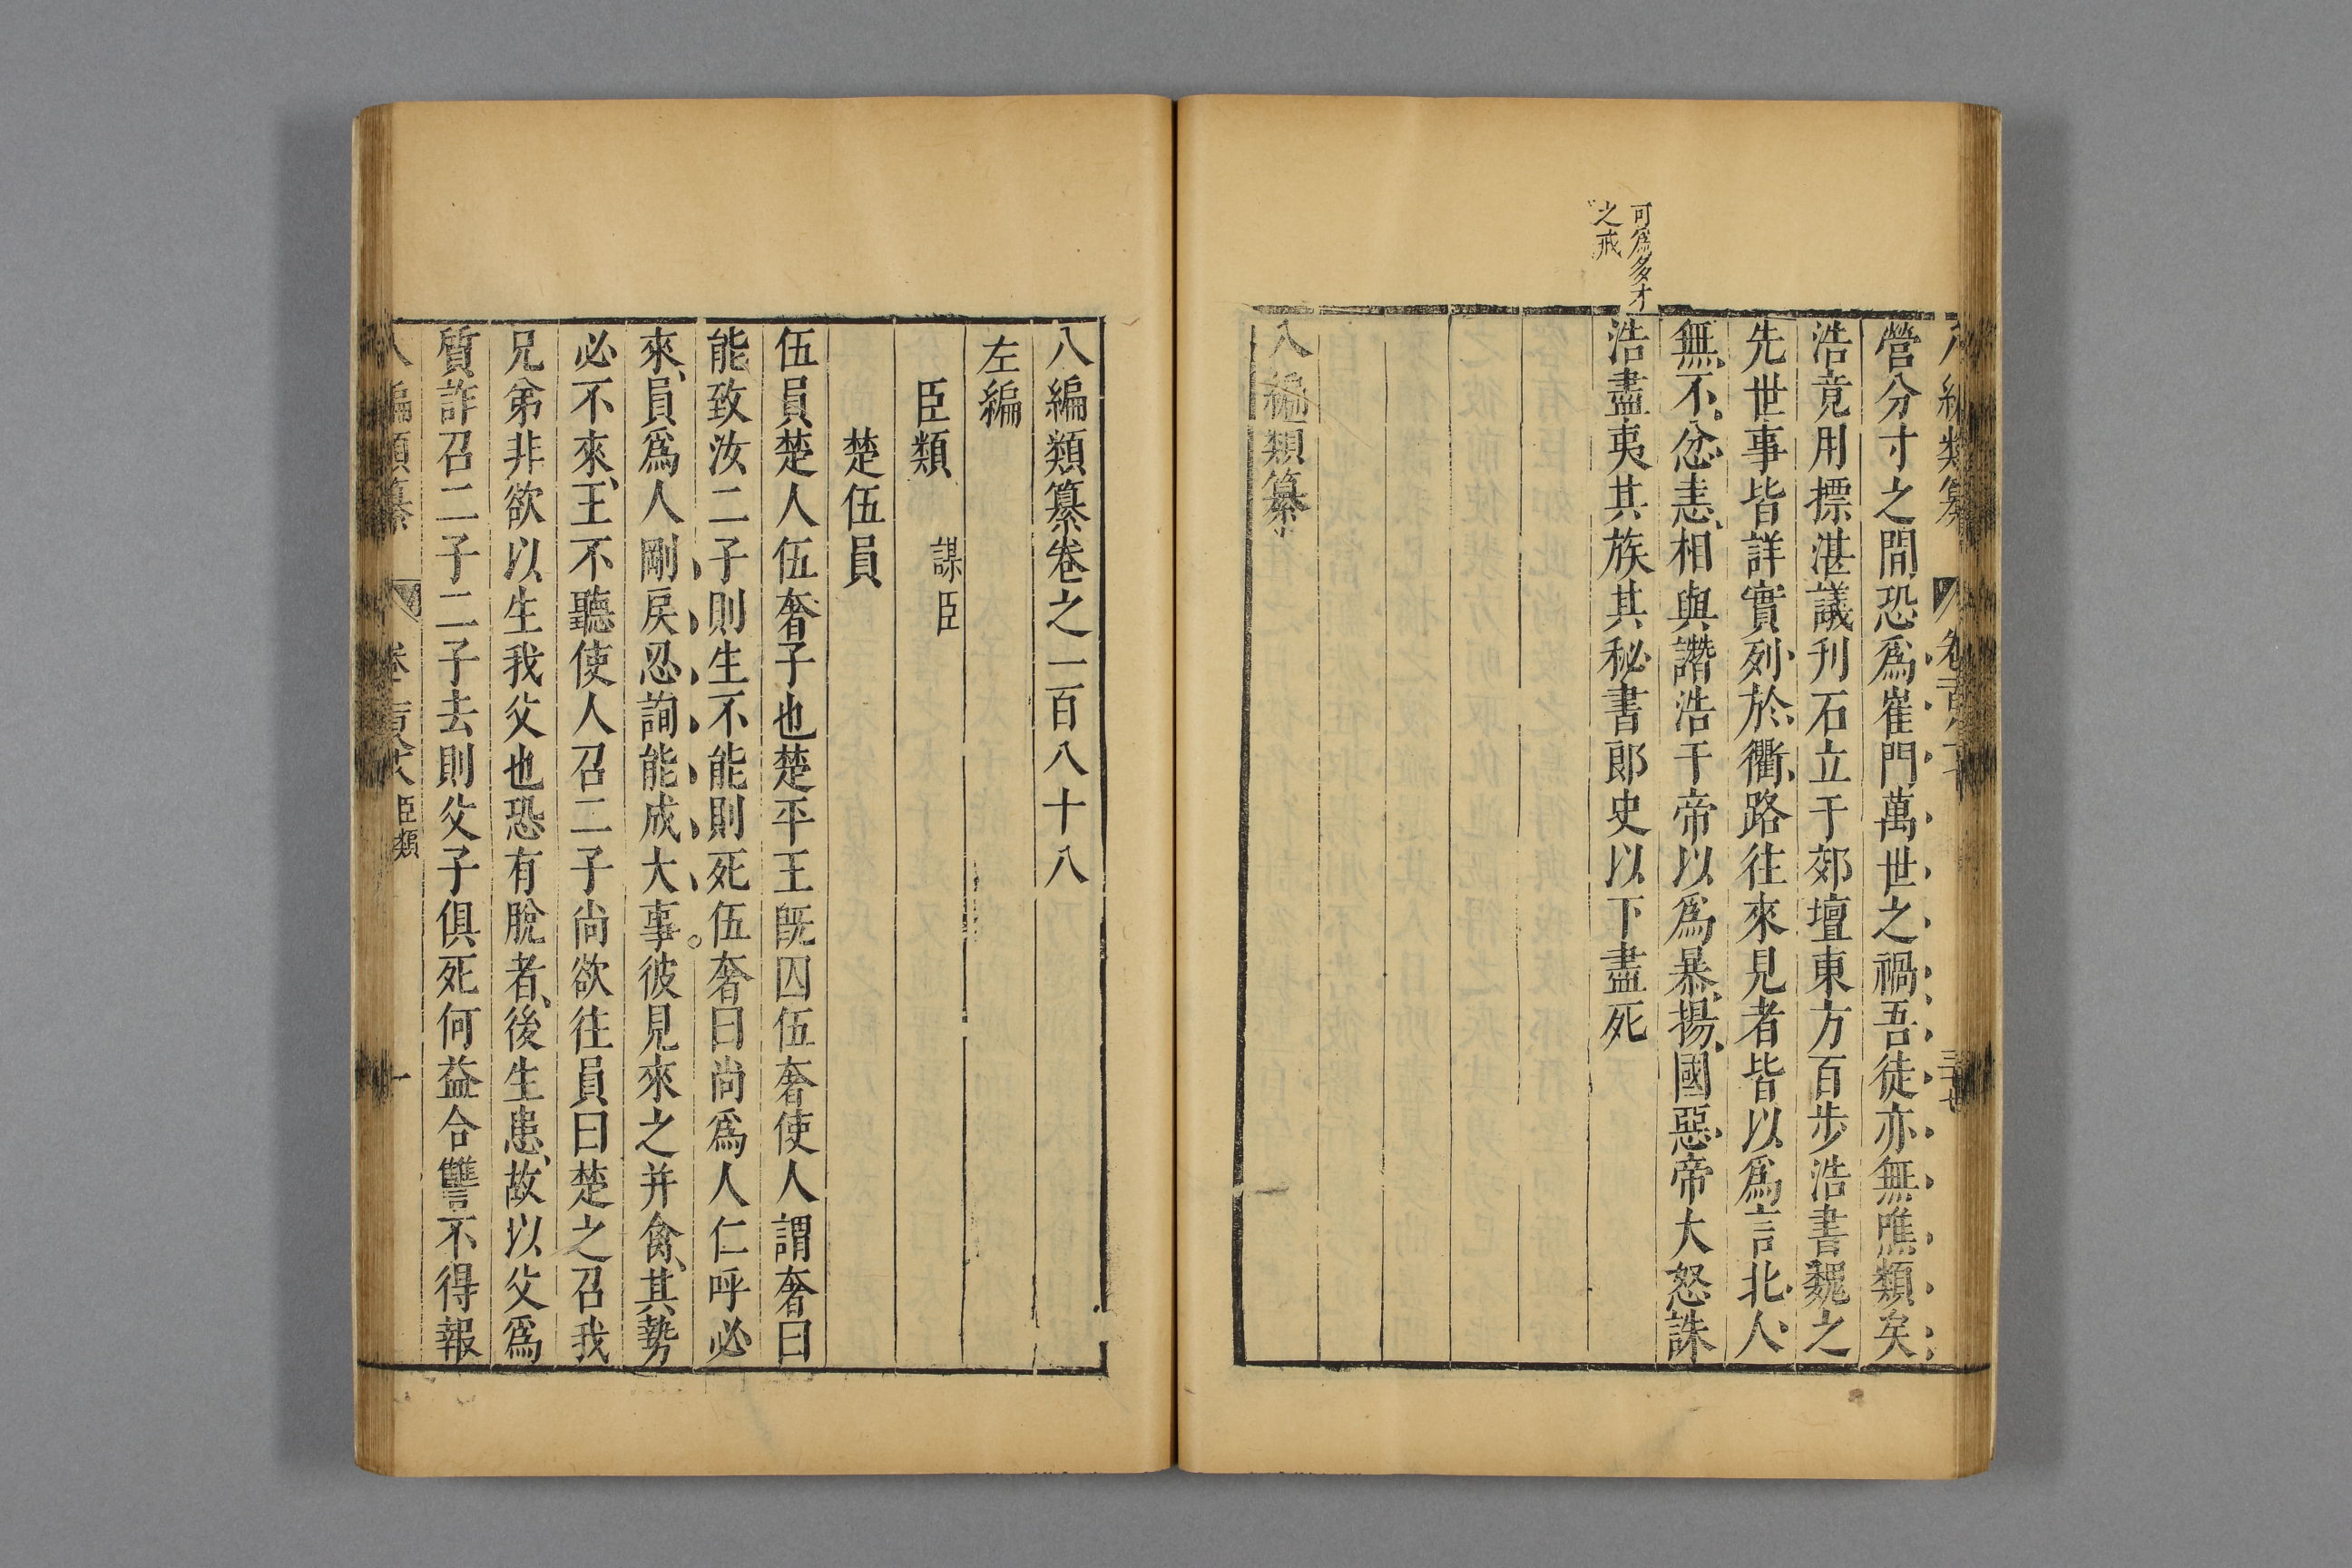 可爲多才
之戒
營分寸之間恐爲崔門萬世之禍吾徒亦無噍類矣
浩竟用摽湛議刋石立于郊壇東方百步浩書魏之
先世事皆詳實列於衢路往來見者皆以爲言北人
無不忿恚相與譖浩于帝以爲暴揚國惡帝大怒誅
浩盡夷其族其秘書郎史以下盡死
八編類纂
八編類纂卷之一百八十八
左編
臣類 謀臣
楚伍員
伍員楚人伍奢子也楚平王既囚伍奢使人謂奢曰
能致汝二子則生不能則死伍奢曰尚爲人仁呼必
來員爲人剛戾忍詢能成大事彼見來之并禽其勢
必不來王不聽使人召二子尚欲往員曰楚之召我
兄弟非欲以生我父也恐有脫者後生患故以父爲
質詐召二子二子去則父子俱死何益合讐不得報
編類纂 臣類 一